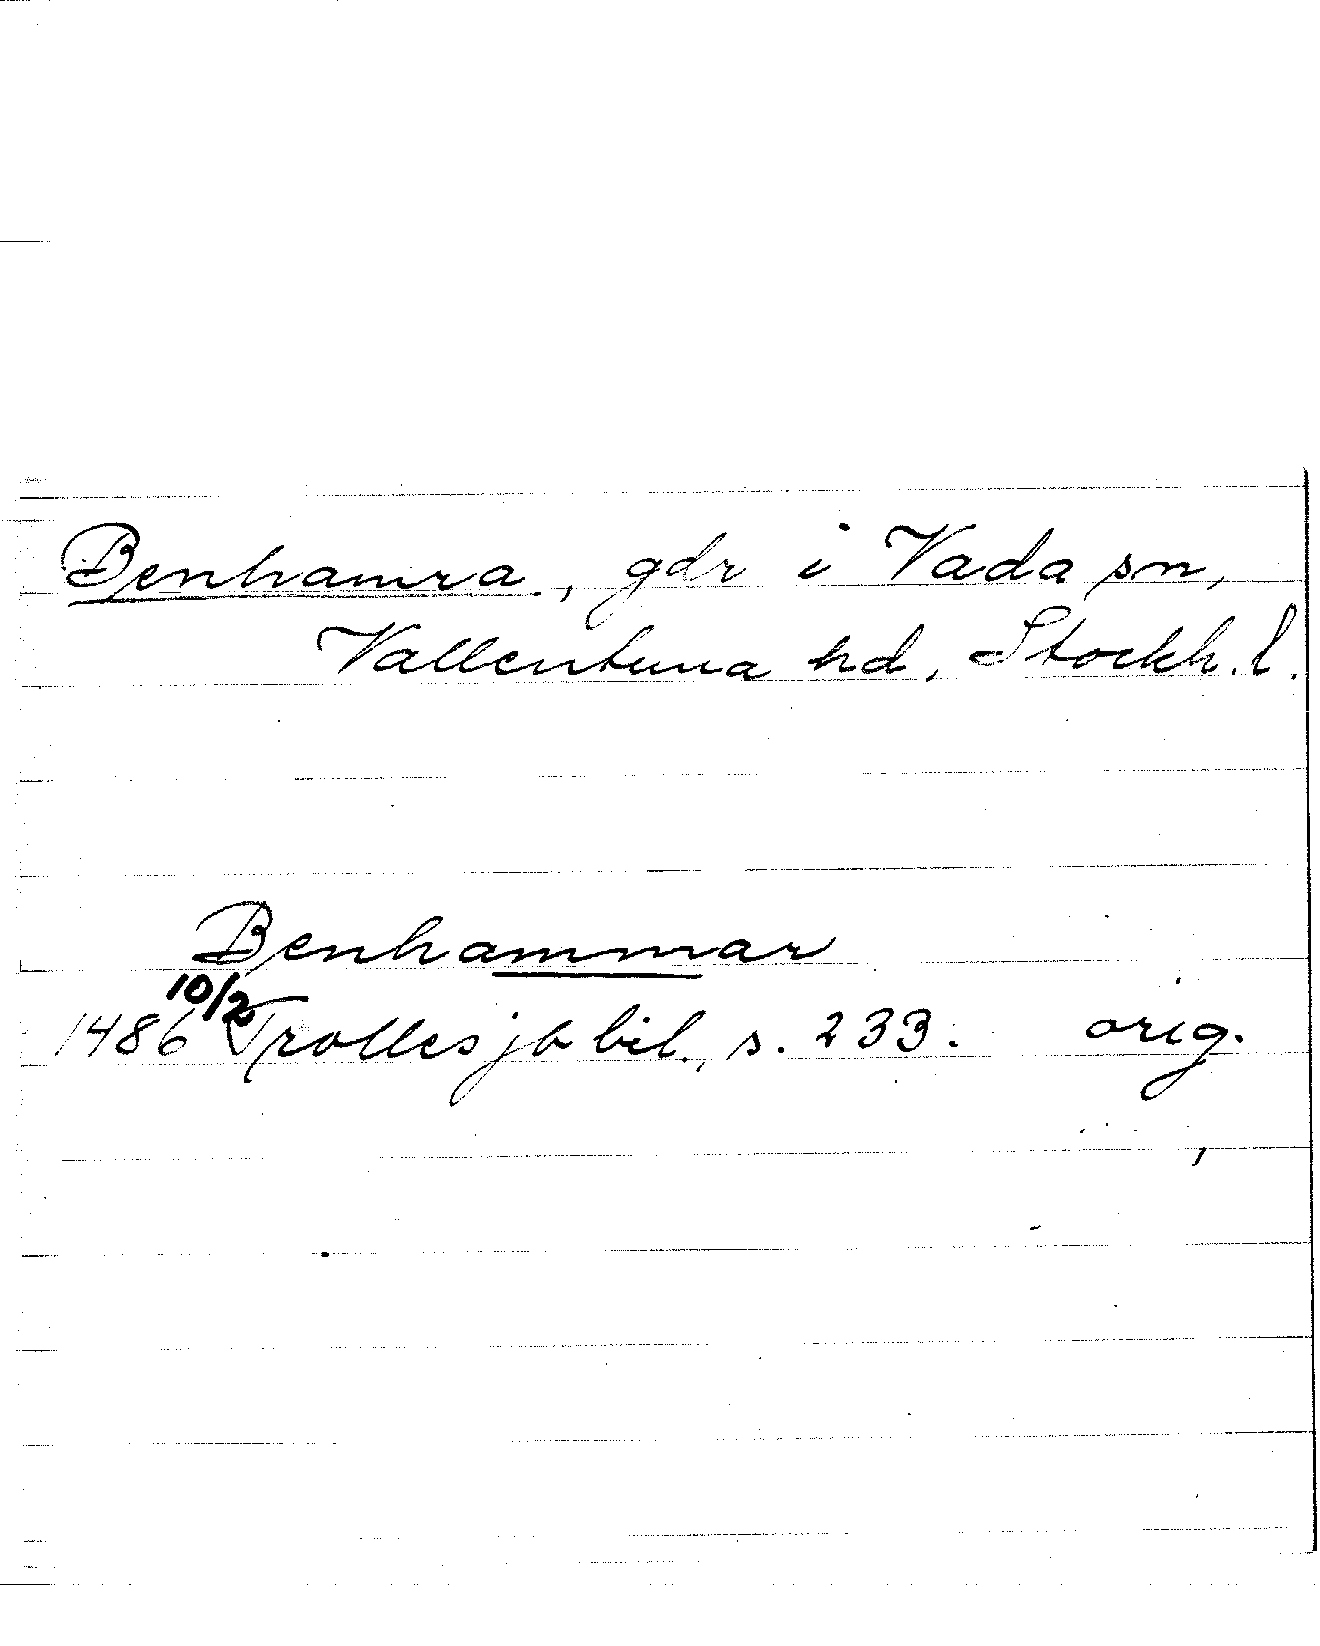 Benhamra, gdr i Vada sn,
Vallentuna hd, Stockh. l.
Benhammar
1486 10/2 Trolles jb bil., s. 233. orig.